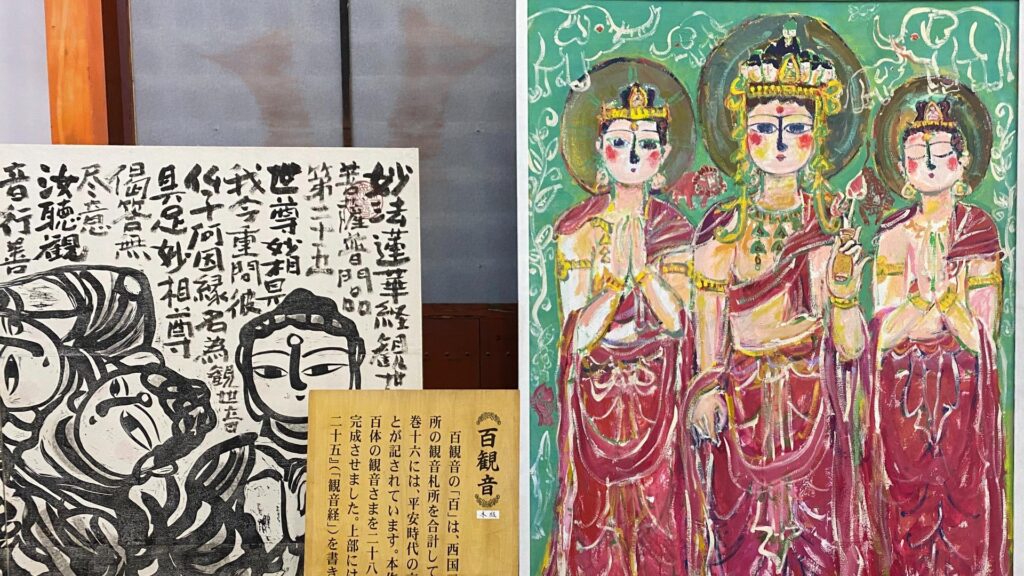 妙法蓮華経観世
菩薩普門品
第二十五
世尊妙相具
我今重問彼
仏子何因縁名為観世音
具足妙相尊
偈答無
尽意
汝聴観
音行善
百観音
木版
百観音の「百」は、西国
所の観音札所を合計して
巻十六には、平安時代の
とが記されています。本作
百体の観音さまを二十八
完成させました。上部には
二十五』(「観音経」)を書き